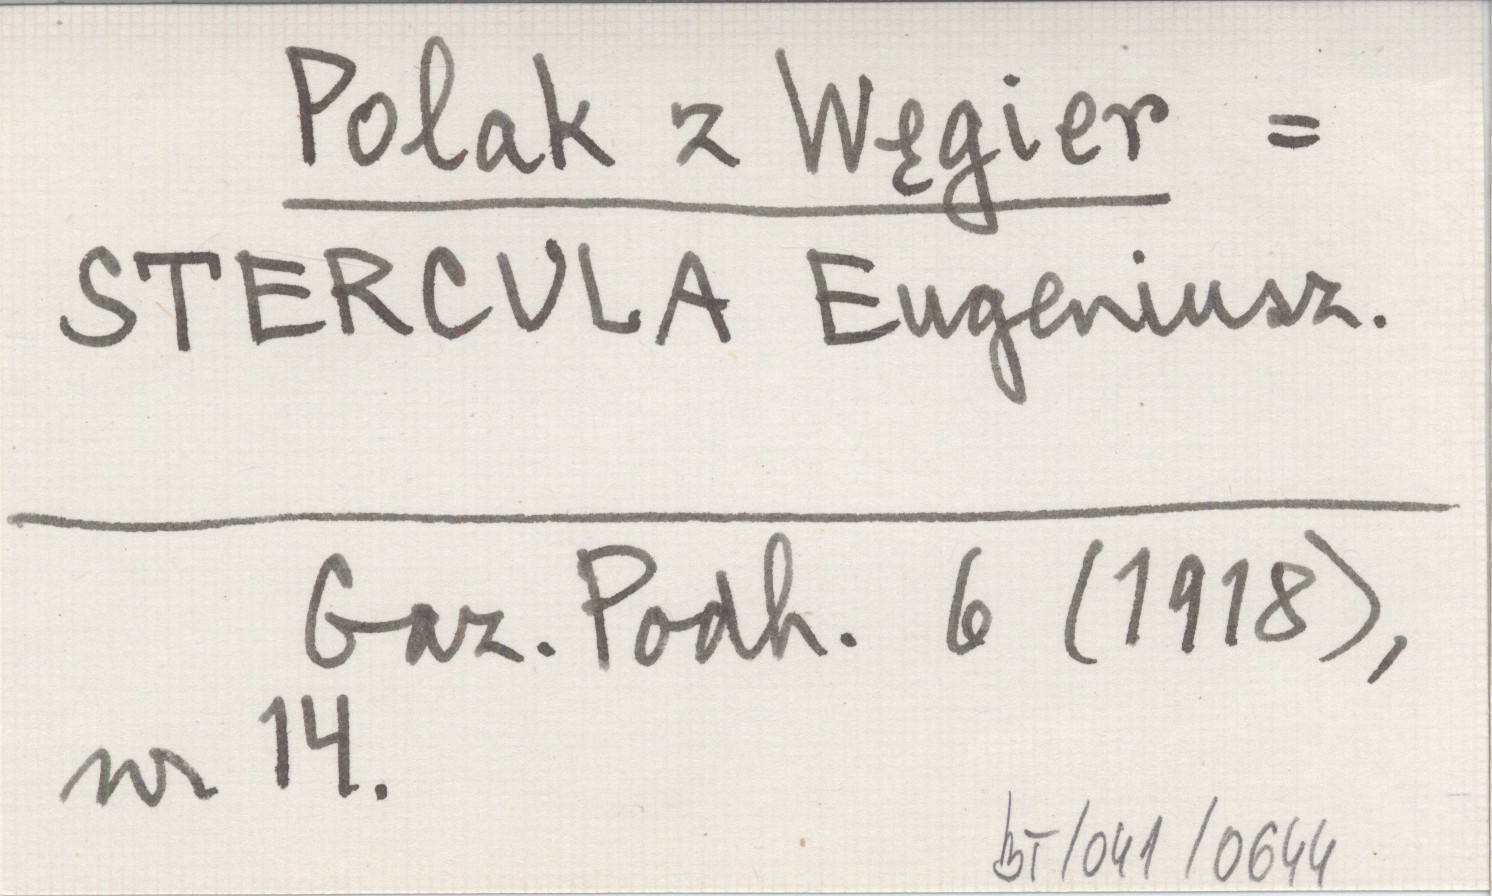 Polak z Węgier =
STERCULA Eugeniusz.
Gaz. Podh. 6 (1918),
nr 14.
BT/041/0644